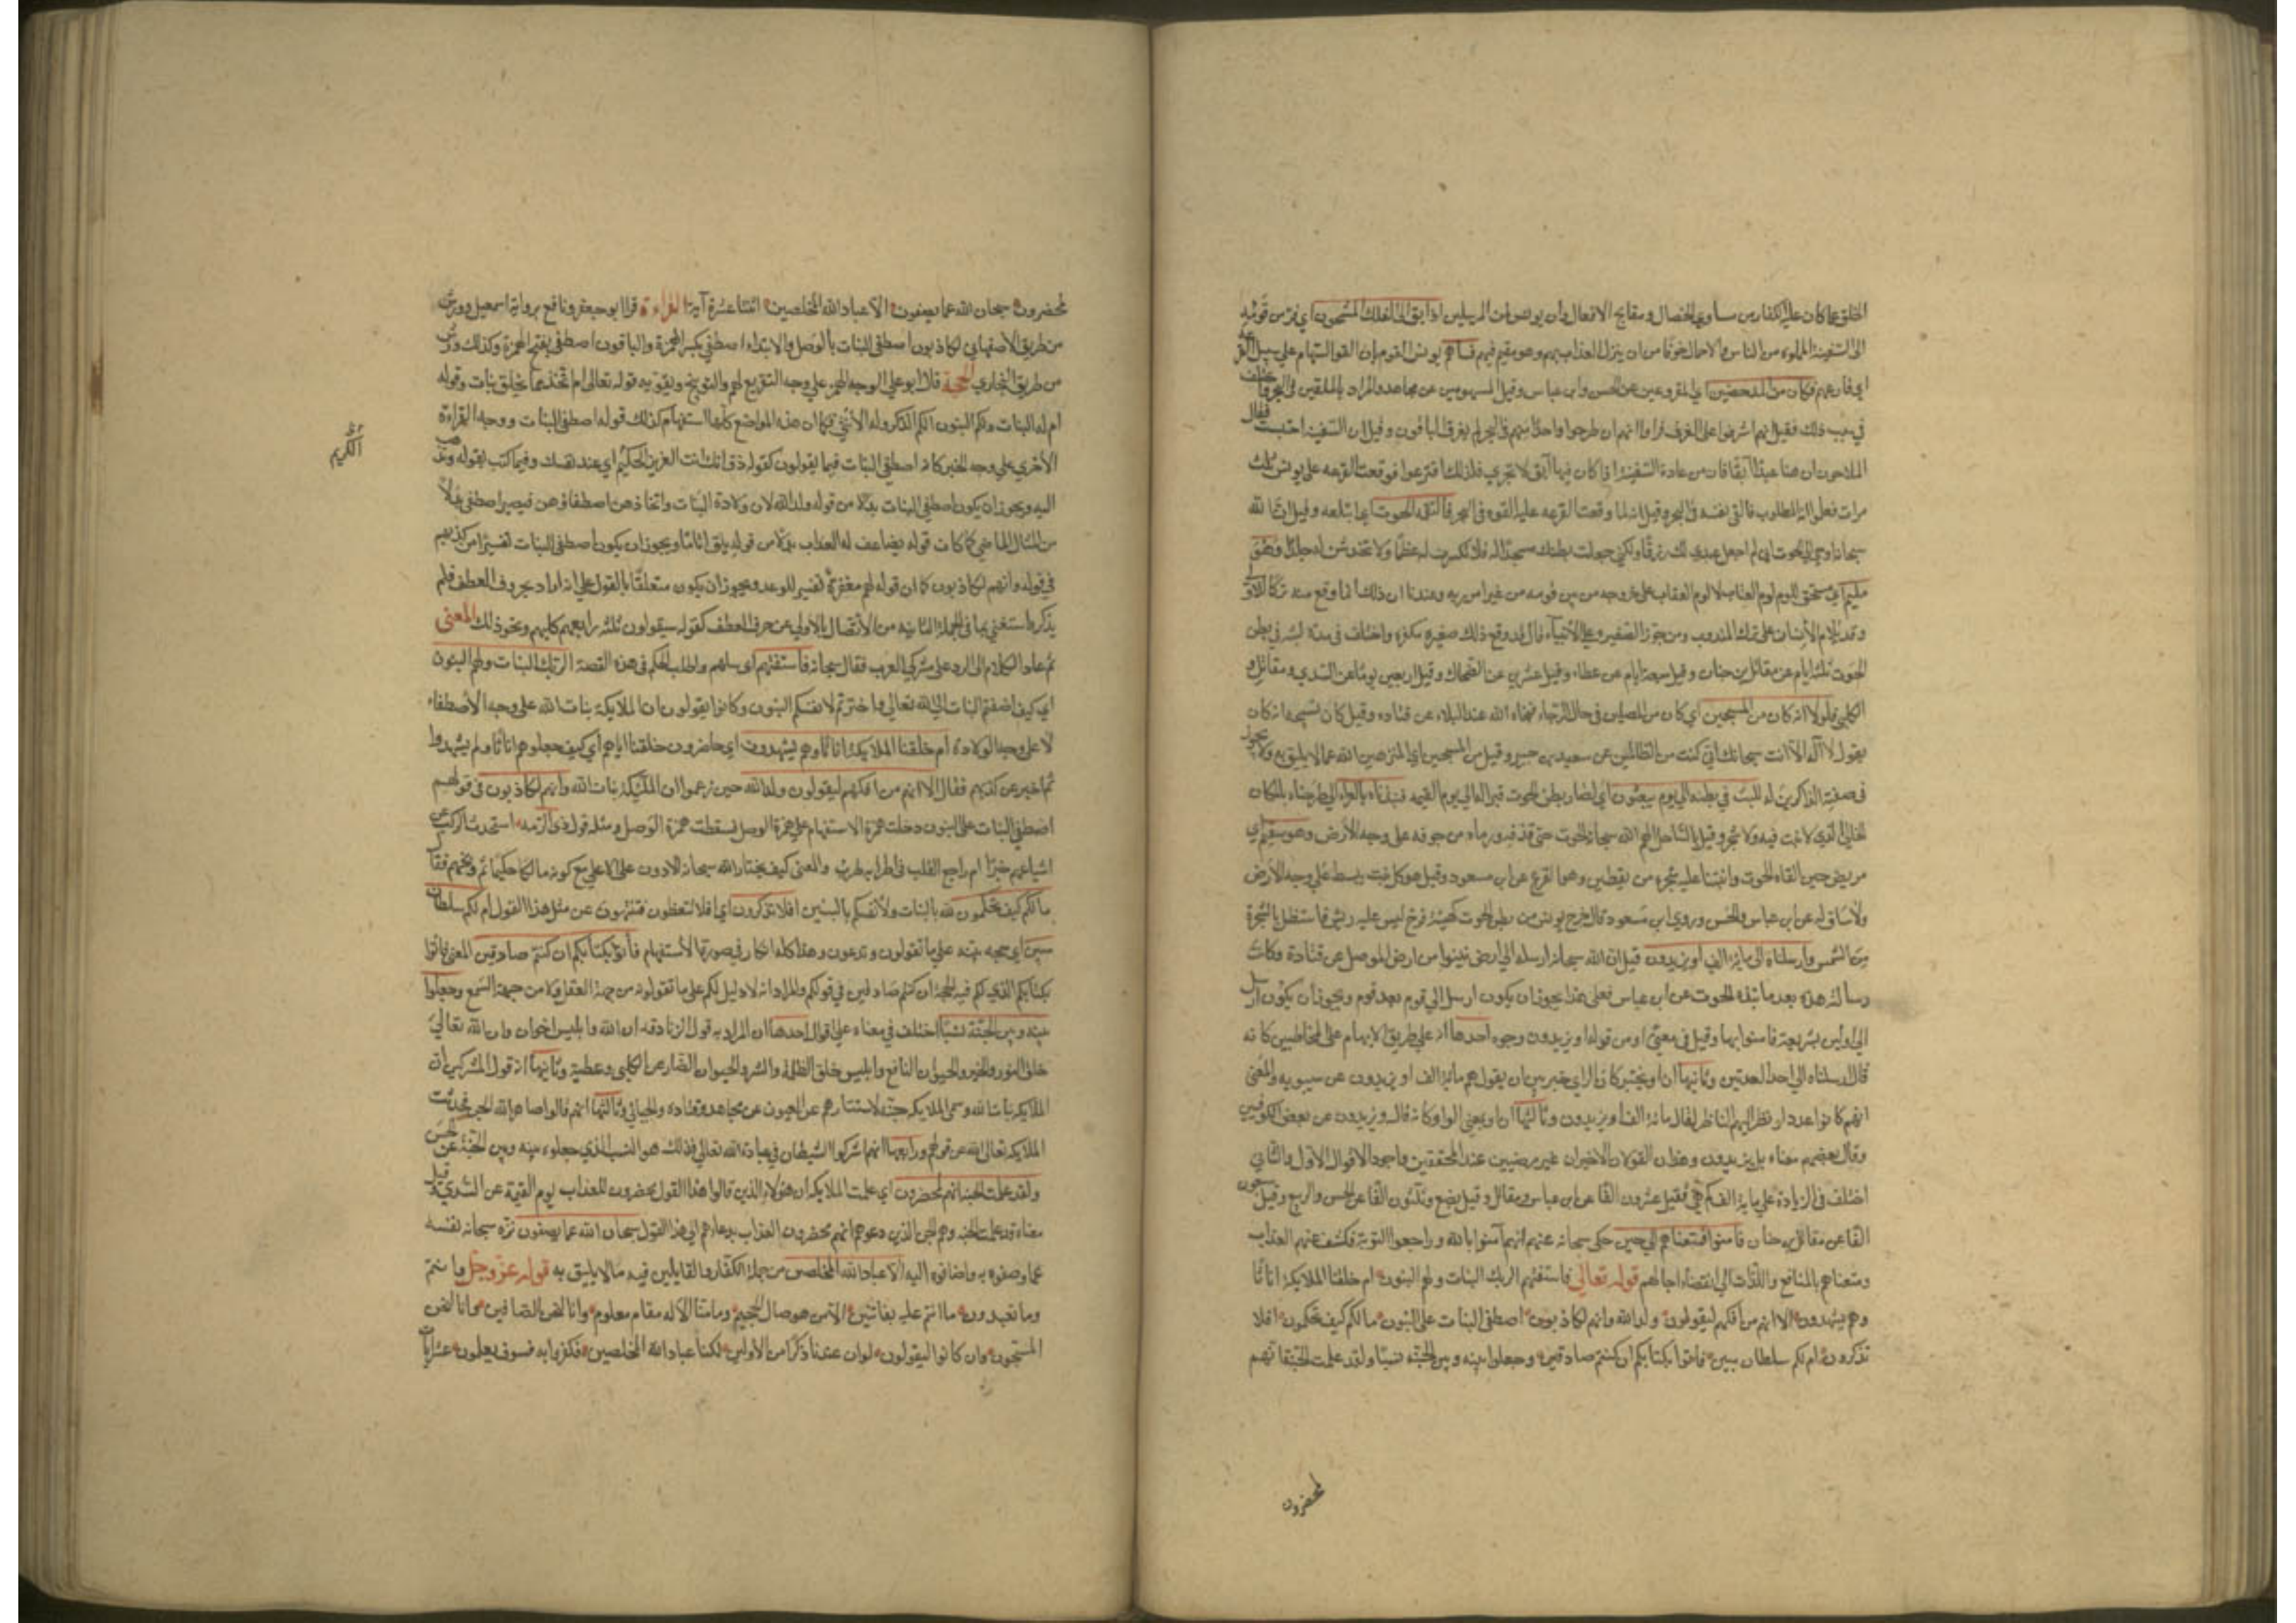 الخلق عما كان عليه الكفار من مساوي الخصال ومقابح الافعال وان يونس لمن المرسلين اذ ابق الى الفلك المشحون اي فر من قومه
الى السفينة المملوءة من الناس والاحمال خوفا من ان ينزل العذاب بهم وهو مقيم فيهم فساهم يونس القوم بان القوا السهام على سبيل القرعة
اي قارعهم فكان من المدحضين اي المقروعين عن الحسن وابن عباس وقيل المسهومين عن مجاهد والمراد بالملقين في البحر واختلف
في سبب ذلك فقيل انهم اشرفوا على الغرق فراوا انهم ان طرحوا واحدا منهم في البحر لم يغرق الباقون وقيل ان السفينة احتبست فقال
الملاحون ان هنا عبدا آبقا فان من عادة السفينة اذا كان فيها آبق لا تجري فلذلك اقترعوا فوقعت القرعة على يونس ثلث
مرات فعلموا انه المطلوب فالقى نفسه في البحر وقيل انه لما وقعت القرعة عليه القوه في البحر فالتقمه الحوت اي ابتلعه وقيل ان الله
سبحانه اوحى الى الحوت اني لم اجعل عبدي لك رزقا ولكني جعلت بطنك مسجدا له فلا تكسرن له عظما ولا تخدشن له جلدا وهو
مليم اي مستحق للوم لوم العتاب لا لوم العقاب على خروجه من بين قومه من غير امر ربه وعندنا ان ذلك انما وقع منه تركا للاولى
وقد يلام الانسان على ترك المندوب ومن جوز الصغيرة على الانبياء قال قد وقع ذلك صغيرة مكفرة واختلف في مدة لبثه في بطن
الحوت ثلثة ايام عن مقاتل بن حيان وقيل سبعة ايام عن عطاء وقيل عشرين عن الضحاك وقيل اربعين يوما عن السدي ومقاتل و
الكلبي فلولا انه كان من المسبحين اي كان من المصلين في حال الرخاء فنجاه الله عند البلاء عن قتادة وقيل كان تسبيحه انه كان
يقول لا اله الا انت سبحانك اني كنت من الظالمين عن سعيد بن جبير وقيل من المسبحين اي المنزهين الله عما لا يليق به ولا يجوز
في صفته الذاكرين له للبث في بطنه الى يوم يبعثون اي لصار بطن الحوت قبرا له الى يوم القيمة فنبذناه بالعراء اي طرحناه بالمكان
الخالي الذي لا نبت فيه ولا شجر وقيل بالساحل الهم الله سبحانه الحوت حتى قذفه ورماه من جوفه على وجه الارض وهو سقيم اي
مريض حين القاه الحوت وانبتنا عليه شجرة من يقطين وهو القرع عن ابن مسعود وقيل هو كل نبت يبسط على وجه الارض
ولا ساق له عن ابن عباس والحسن وروى ابن مسعود قال خرج يونس من بطن الحوت كهيئة فرخ ليس عليه ريش فاستظل بالشجرة
من الشمس وارسلناه الى مائة الف او يزيدون قيل ان الله سبحانه ارسله الى اهل نينوا من ارض الموصل عن قتادة وكانت
رسالته هذه بعد ما نبذه الحوت عن ابن عباس فعلى هذا يجوز ان يكون ارسل الى قوم بعد قوم ويجوز ان يكون ارسل
الى الاولين بشريعة فامنوا بها وقيل في معنى او من قوله او يزيدون وجوه احدها انه على طريق الابهام على المخاطبين كانه
قال ارسلناه الى احد العددين وثانيها ان او تخيير كان الرائي خير بين ان يقول هم مائة الف او يزيدون عن سيبويه والمعنى
انهم كانوا عددا لو نظر اليهم الناظر لقال مائة الف او يزيدون وثالثها ان او بمعنى الواو كانه قال ويزيدون عن بعض الكوفيين
وقال بعضهم معناه بل يزيدون وهذان القولان الاخيران غير مرضيين عند المحققين واجود الاقوال الاول والثاني
اختلف في الزيادة على مائة الف كم هي فقيل عشرون الفا عن ابن عباس ومقاتل وقيل بضع وثلثون الفا عن الحسن والربيع وقيل سبعون
الفا عن مقاتل بن حيان فامنوا فمتعناهم الى حين حكى سبحانه عنهم انهم آمنوا بالله وراجعوا التوبة فكشف عنهم العذاب
ومتعناهم بالمنافع واللذات الى انقضاء اجالهم قوله تعالى فاستفتهم الربك البنات ولهم البنون ام خلقنا الملايكة اناثا
وهم يشهدون الا انهم من افكهم ليقولون ولد الله وانهم لكاذبون اصطفى البنات على البنون ما لكم كيف تحكمون افلا
تذكرون ام لكم سلطان مبين فاتوا بكتابكم ان كنتم صادقين وجعلوا بينه وبين الجنة نسبا ولقد علمت الجنة انهم
لمحضرون
لمحضرون سبحان الله عما يصفون الا عباد الله المخلصين اثنتا عشرة آية القراءة قرا ابو جعفر ونافع برواية اسمعيل وورش
من طريق الاصفهاني لكاذبون اصطفى البنات بالوصل والابتداء اصطفى بكسر الهمزة والباقون اصطفى بفتح الهمزة وكذلك ورش
من طريق البخاري الحجة قال ابو علي الوجه الهمز على وجه التقريع لهم والتوبيخ ويقويه قوله تعالى ام اتخذ مما يخلق بنات وقوله
ام له البنات ولكم البنون الكم الذكر وله الانثى فكما ان هذه المواضع كلها استفهام كذلك قوله اصطفى البنات ووجه القراءة
الاخرى على وجه الخبر كانه اصطفى البنات فيما يقولون كقوله ذق انك انت العزيز الحكيم اي عند نفسك وفيما كنت تقوله وتذهب
الكريم
اليه ويجوز ان يكون اصطفى البنات بدلا من قوله ولد الله لان ولادة البنات واتخاذهن اصطفاؤهن فيصير اصطفى بدلا
من المثال الماضي كما كان قوله يضاعف له العذاب بدلا من قوله يلق اثاما ويجوز ان يكون اصطفى البنات تفسيرا من كذبهم
في قوله وانهم لكاذبون كما ان قوله لهم مغفرة تفسير للوعد ويجوز ان يكون متعلقا بالقول على انه اراد بحروف العطف فلم
يذكرها استغنى بما في الجملة الثانية من الاتصال بالاولى عن حرف العطف كقوله سيقولون ثلثة رابعهم كلبهم ونحو ذلك المعنى
ثم عاد الكلام الى الرد على مشركي العرب فقال سبحانه فاستفتهم اي سلهم واطلب الحكم في هذه القصة الربك البنات ولهم البنون
اي كيف اضفتم البنات الى الله تعالى واخترتم لانفسكم البنون وكانوا يقولون ان الملايكة بنات الله على وجه الاصطفاء
لا على وجه الولادة ام خلقنا الملايكة اناثا وهم يشهدون اي حاضرون خلقنا اياهم اي كيف جعلوهم اناثا ولم يشهدوا
ثم اخبر عن كذبهم فقال الا انهم من افكهم ليقولون ولد الله حين زعموا ان الملئكة بنات الله وانهم لكاذبون في قولهم
اصطفى البنات على البنون دخلت همزة الاستفهام على همزة الوصل فسقطت همزة الوصل ومثله قول ذي الرمة استحدث الركب عن
اشياعهم خبرا ام راجع القلب من اطرابه طرب والمعنى كيف يختار الله سبحانه الادون على الاعلى مع كونه مالكا حكيما ثم وبخهم فقال
ما لكم كيف تحكمون لله بالبنات ولانفسكم بالبنين افلا تذكرون اي افلا تتعظون فتنتهون عن مثل هذا القول ام لكم سلطان
مبين اي حجة بينة على ما تقولون وتدعون وهذا كله انكار في صورة الاستفهام فأتوا بكتابكم ان كنتم صادقين المعنى فاتوا
بكتابكم الذي لكم فيه الحجة ان كنتم صادقين في قولكم والمراد انه لا دليل لكم على ما تقولونه من جهة العقل ولا من جهة السمع وجعلوا
بينه وبين الجنة نسبا اختلف في معناه على اقوال احدها ان المراد به قول الزنادقة ان الله وابليس اخوان وان الله تعالى
خلق النور والخير والحيوان النافع وابليس خلق الظلمة والشر والحيوان الضار عن الكلبي وعطية وثانيها انه قول المشركين ان
الملايكة بنات الله وسمى الملايكة جنة لاستتارهم عن العيون عن مجاهد وقتادة والجبائي وثالثها انهم قالوا صاهر الله الجن فحدثت
الملايكة تعالى الله عن قولهم ورابعها انهم اشركوا الشيطان في عبادة الله تعالى فذلك هو النسب الذي جعلوه بينه وبين الجنة عن الحسن
ولقد علمت الجنة انهم لمحضرون اي علمت الملايكة ان هؤلاء الذين قالوا هذا القول محضرون للعذاب يوم القيمة عن السدي وقيل
معناه ولقد علمت الجنة وهم الجن الذين دعوهم انهم محضرون العذاب بدعائهم الى هذا القول سبحان الله عما يصفون نزه سبحانه نفسه
عما وصفوه به واضافوه اليه الا عباد الله المخلصين من جملة الكفار والقايلين فيه ما لا يليق به قوله عز وجل وما منتم
وما تعبدون ما انتم عليه بفاتنين الا من هو صال الجحيم وما منا الا له مقام معلوم وانا لنحن الصافون وانا لنحن
المسبحون وان كانوا ليقولون لو ان عندنا ذكرا من الاولين لكنا عباد الله المخلصين فكفروا به فسوف يعلمون عشر آيات